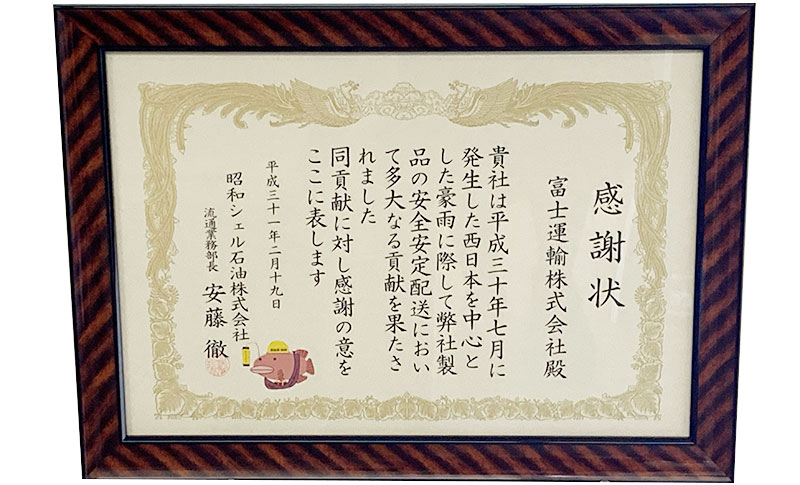 感謝状
富士運輸株式会社殿
貴社は平成三十年七月に
発生した西日本を中心と
した豪雨に際して弊社製
品の安全安定配送におい
て多大なる貢献を果たさ
れました
同貢献に対し感謝の意を
ここに表します
平成三十一年二月十九日
昭和シェル石油株式会社
流通業務部長 安藤徹